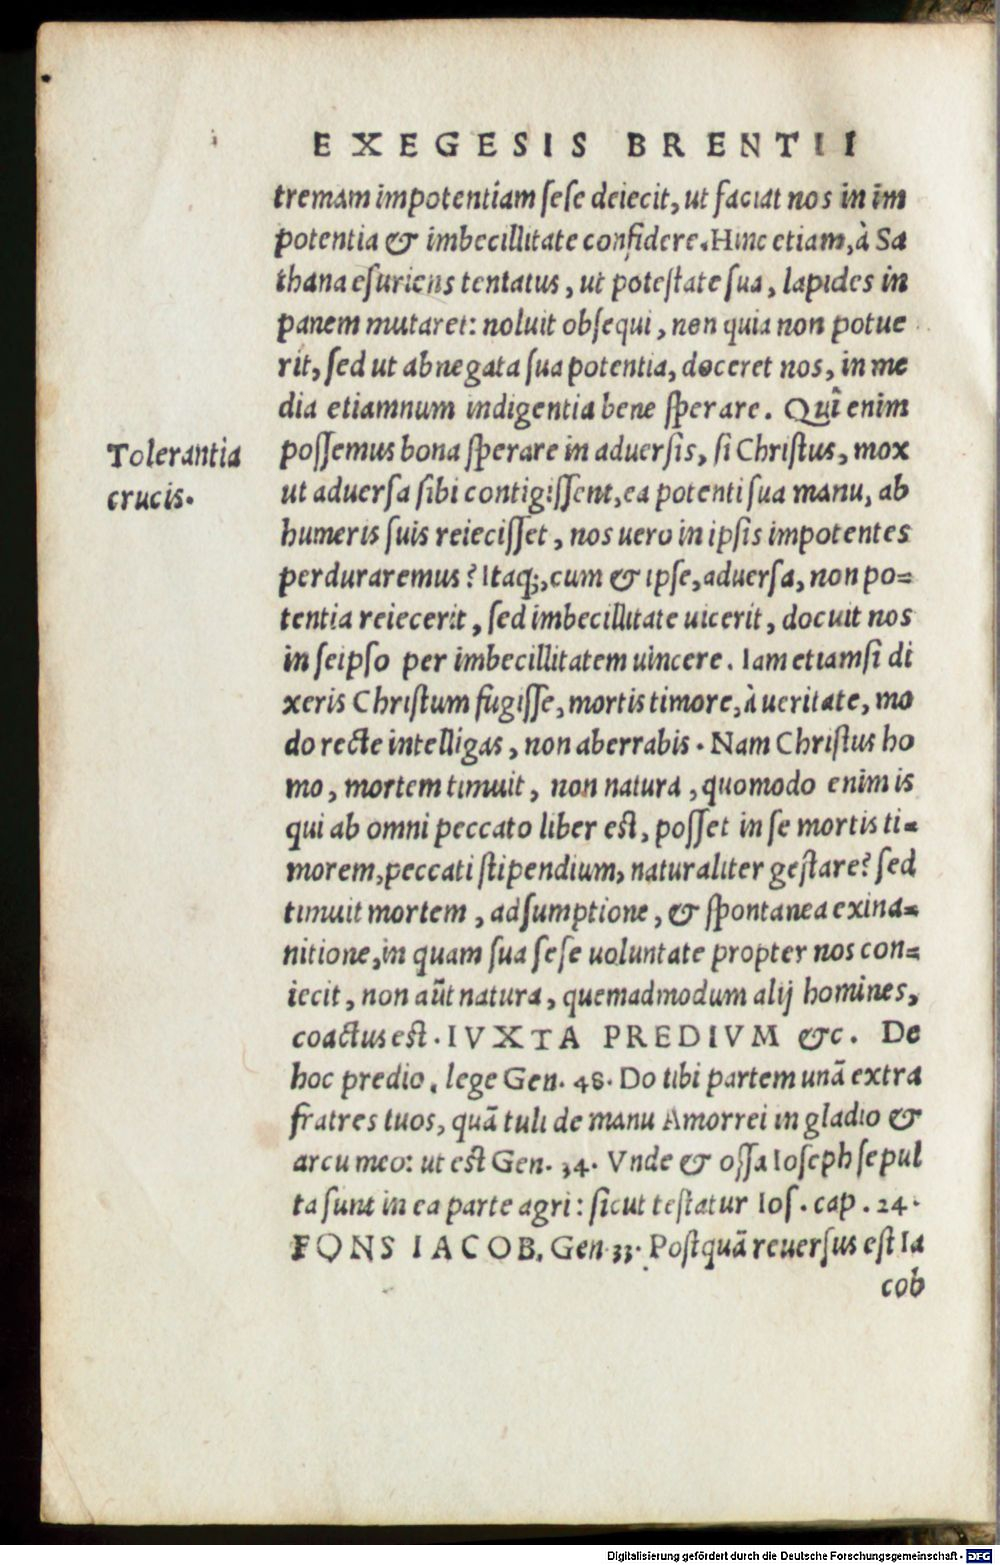 EXEGESIS BRENTII
tremam impotentiam ſeſe deiecit, ut faciat nos in im
potentia & imbecillitate confidere. Hinc etiam, à Sa
thana eſuriens tentatus, ut poteſtate ſua, lapides in
panem mutaret: noluit obſequi, non quia non potue
rit, ſed ut abnegata ſua potentia, doceret nos, in me
dia etiamnum indigentia bene ſperare. Quî enim
Tolerantia
crucis.
poſſemus bona ſperare in aduerſis, ſi Chriſtus, mox
ut aduerſa ſibi contigiſſent, ea potenti ſua manu, ab
humeris ſuis reieciſſet, nos uero in ipſis impotentes
perduraremus? Itaq;, cum & ipſe, aduerſa, non po=
tentia reiecerit, ſed imbecillitate uicerit, docuit nos
in ſeipſo per imbecillitatem uincere. Iam etiamſi di
xeris Chriſtum fugiſſe, mortis timore, à ueritate, mo
do recte intelligas, non aberrabis. Nam Chriſtus ho
mo, mortem timuit, non natura, quomodo enim is
qui ab omni peccato liber eſt, poſſet in ſe mortis ti=
morem, peccati ſtipendium, naturaliter geſtare? ſed
timuit mortem, adſumptione, & ſpontanea exina=
nitione, in quam ſua ſeſe uoluntate propter nos con=
iecit, non aūt natura, quemadmodum alij homines,
coactus eſt. IVXTA PREDIVM &c. De
hoc predio, lege Gen. 48. Do tibi partem unā extra
fratres tuos, quā tuli de manu Amorrei in gladio &
arcu meo: ut eſt Gen. 34. Vnde & oſſa Ioſeph ſepul
ta ſunt in ea parte agri: ſicut teſtatur Ioſ. cap. 24.
FONS IACOB. Gen. 33. Poſtquā reuerſus eſt Ia
cob
Digitalisierung gefördert durch die Deutsche Forschungsgemeinschaft - DFG